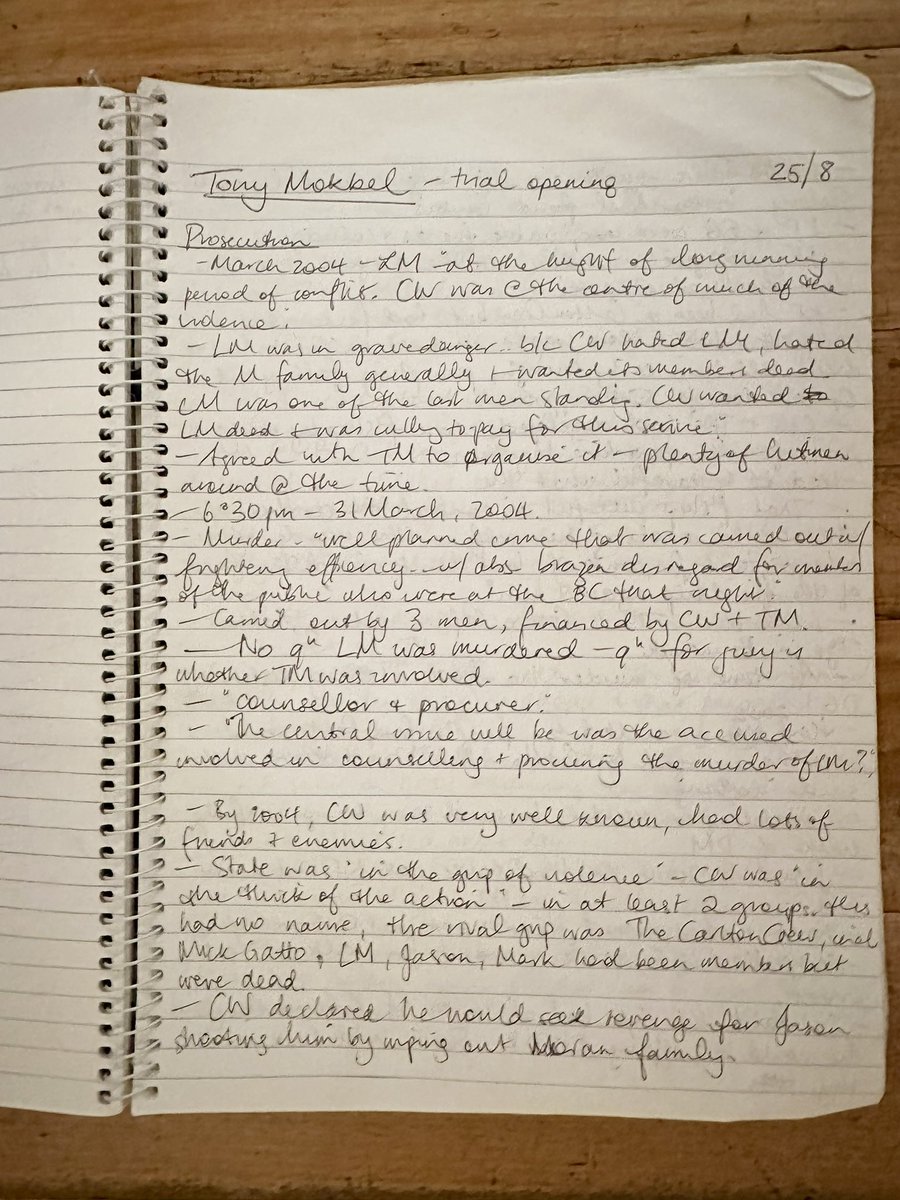 Tony Mokbel - trial opening 25/8
Prosecution
- March 2004 - LM "at the height of long running
period of conflict. CW was @ the centre of much of the
violence."
- LM was in grave danger b/c CW hated LM, hated
the M family generally + wanted its members dead.
LM was one of the last men standing. CW wanted
LM dead + was willing to pay for this service"
- Agreed with TM to organise it - plenty of hitmen
around @ the time.
- 6:30pm - 31 March, 2004.
- Murder - "well planned crime that was carried out w/
frightening efficiency w/ abs brazen disregard for members
of the public who were at the BC that night."
- Carried out by 3 men, financed by CW + TM.
- No qn LM was murdered - qn for jury is
whether TM was involved.
- "counsellor + procurer."
- "The central issue will be was the accused
involved in counselling + procuring the murder of LM?"
- By 2004, CW was very well known, had lots of
friends + enemies.
- State was "in the grip of violence" - CW was "in
the thick of the action" - in at least 2 groups. this
had no name, the rival grp was The Carlton Crew, incl
Mick Gatto, LM, Jason, Mark had been members but
were dead.
- CW declared he would seek revenge for Jason
shooting him by wiping out Moran family.